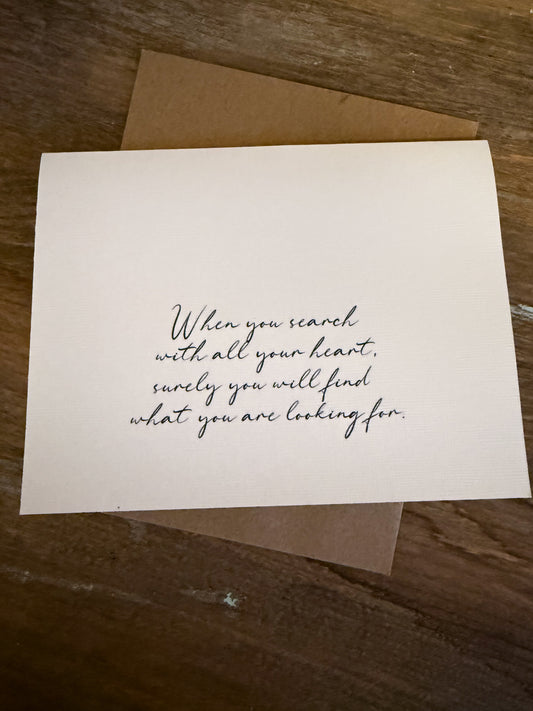 When you search
with all your heart,
surely you will find
what you are looking for.